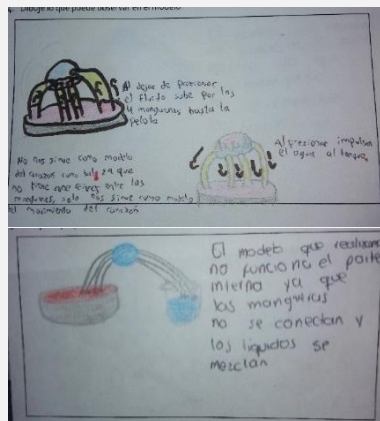 Dibuje lo que puede observar en el modelo
Al dejar de presionar
el fluido sube por las
4 mangueras hasta la
pelota
Al presionar impulsa
el agua al tanque
No nos sirve como modelo
del corazon como tal ya que
no tiene conexiones entre las
mangueras, solo nos sirve como modelo
el movimiento del corazón
El modelo que realizamos
no funciona el parte
interno ya que
las mangueras
no se conectan y
los liquidos se
mezclan